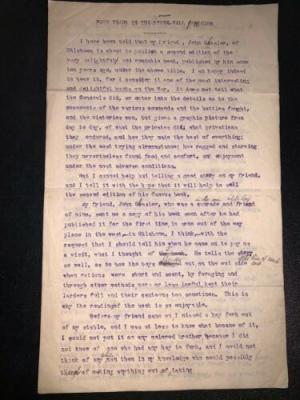 FOUR YEARS IN THE STONEWALL BRIGADE
I have been told that my friend, John Casler, of
Oklahoma is about to publish a second edition of the
very delightful and readable book, published by him some
ten years ago, under the above title. I am happy indeed
to hear it, for I consider it one of the most interesting
and delightful books on the War. It does not tell what
the Generals did, or enter into the details as to the
movements of the various commands and the battles fought,
and the victories won, but gives a graphic picture from
day to day, of what the privates did; what privations
they endured, and how they made the best of everything;
under the most trying circumstances; how ragged and starving
they nevertheless found food, and comfort, and enjoyment
under the most adverse conditions.
But I cannot help but telling a good story on my friend,
and I tell it with the hope that it will help to sell
the second edition of his famous book.
My friend, John Casler, who was a comrade and friend
of mine, sent me a copy of his book soon after he had
published it for the first time, in some out of the way
place in the west, in Oklahoma, I think, with the
request that I should tell him when he came to pay me
a visit, what I thought of the book. He tells the story
so well, as to how the boys out on the
when rations were short and scant, by foraging and
through other methods more or less lawful, kept their
larders full and their existence too sometimes. This is
why the reading of the book is so enjoyable.
Before my friend came on I missed a hay fork out
of my stable, and I was at loss to know what became of it.
I could not put it on any colored brother, because I did
not know of one who had any hay to fork, and I could not
think of any men then in my knowledge who could possibly
think of making anything out of taking